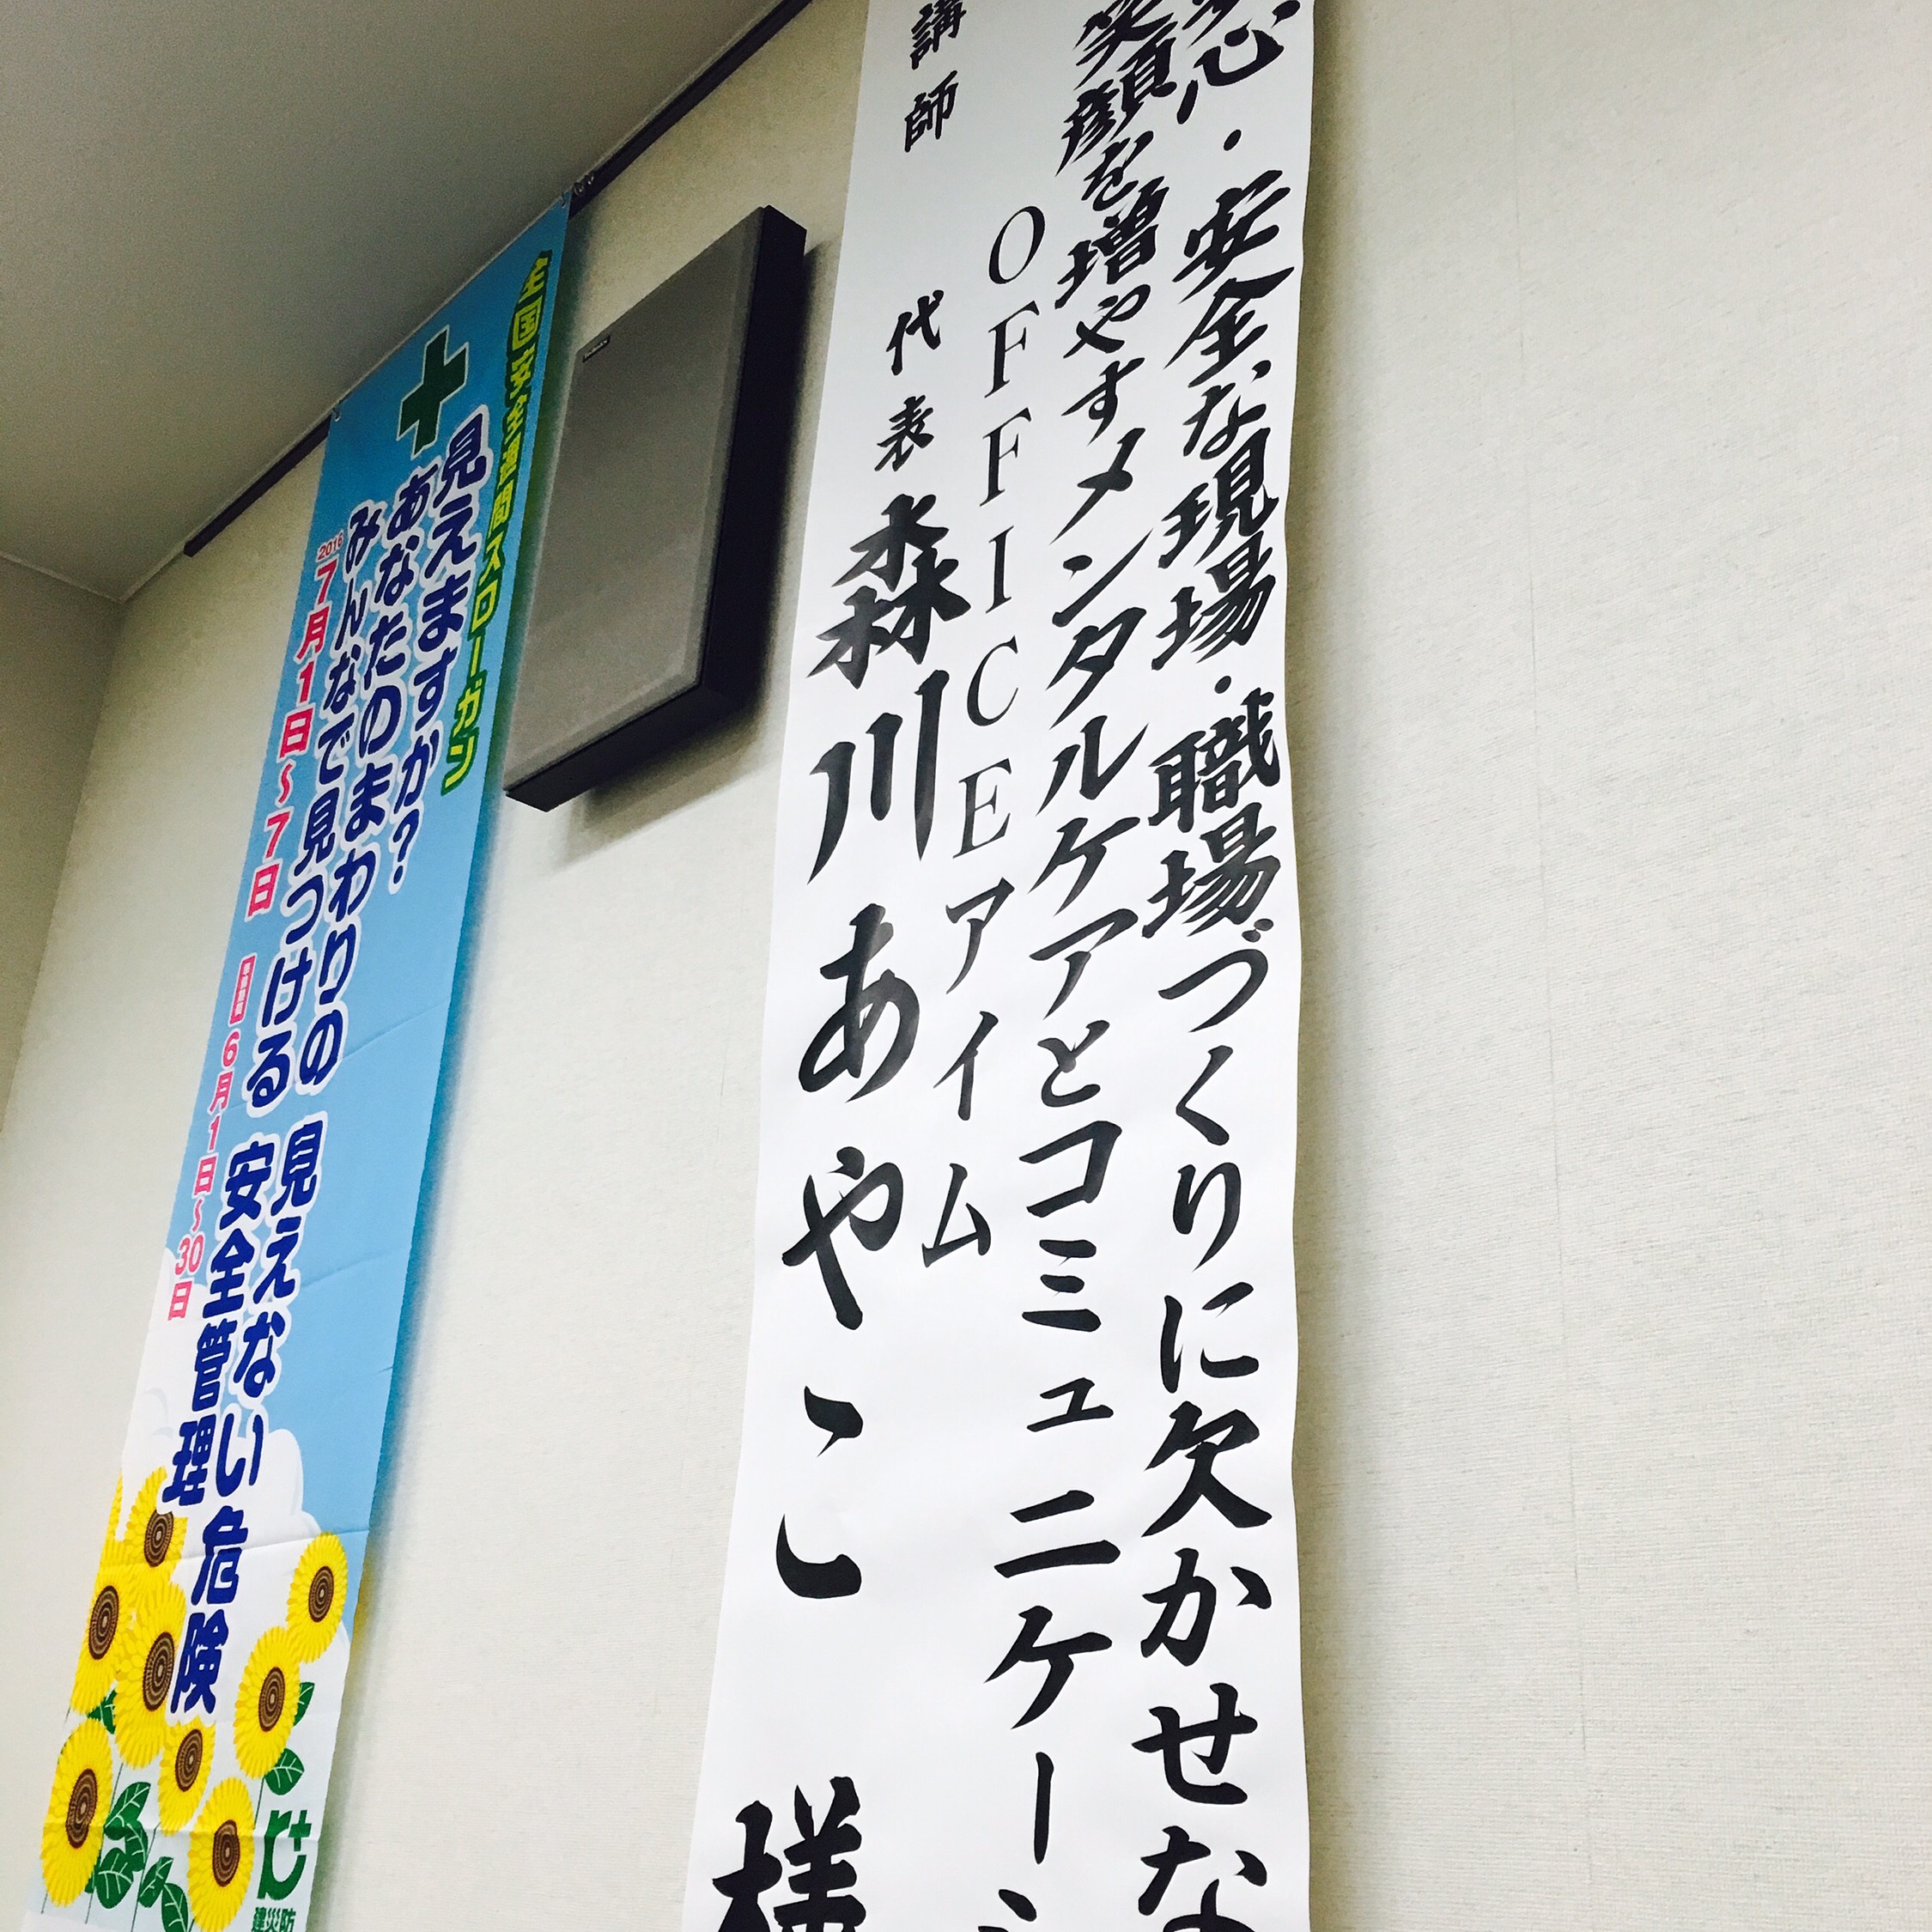 心・安全な現場・職場づくりに欠かせな
笑顔を増やすメンタルケアとコミュニケーシ
OFFICEアイム
講師 代表 森川あやこ 様
全国安全週間スローガン
見えますか?
あなたのまわりの 見えない危険
みんなで見つける 安全管理
2016 7月1日~7日 6月1日~30日
建災防